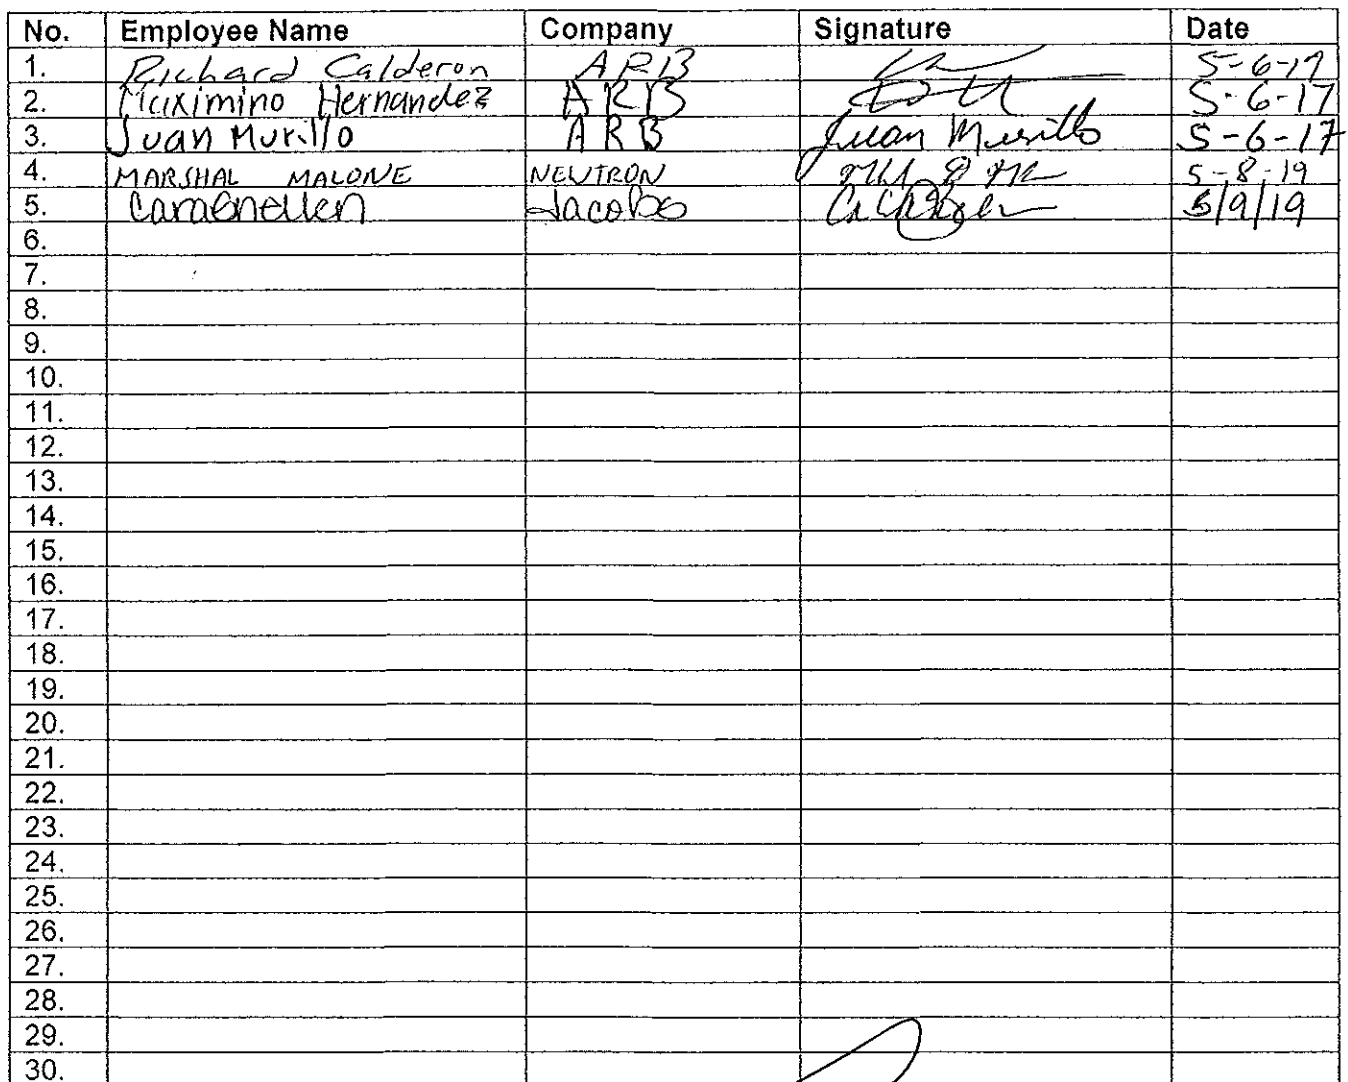 No. Employee Name Company Signature Date
1. Richard Calderon ARB 5-6-19
2. Maximino Hernandez ARB 5-6-17
3. Juan Murillo ARB Juan Murillo 5-6-17
4. MARSHAL MALONE NEUTRON 5-8-19
5. Jacobs 5/9/19
6.
7.
8.
9.
10.
11.
12.
13.
14.
15.
16.
17.
18.
19.
20.
21.
22.
23.
24.
25.
26.
27.
28.
29.
30.